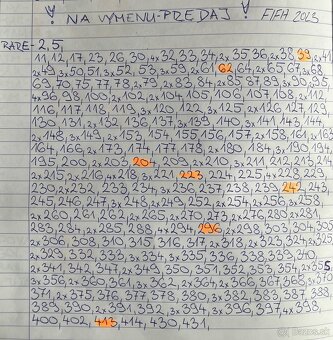 ! NA VÝMENU-PREDAJ ! FIFA 2023
RARE-2,5,
11,12,17,23,26,30,4x32,33,34,2x35,36,2x38,39,2x41,
2x49,3x50,51,3x52,53,3x59,2x61,62,64,2x65,67,3x68,
69,70,75,77,78,2x79,2x83,84,2x85,87,89,3x90,95,
4x96,98,100,2x102,2x104,105,106,107,108,2x
116,117,118,119,3x
130,131,2x
2x148,3x149,2x153,154,155,156,157,2x158,161,
164,166,2x173,174,177,178,2x180,184,3x190,194
195,200,2x203,204,209,2x210,3x211,212,213,
2x215,2x216,4x218,3x221,223,224,225,4x228,229
230,2x232,233,234,3x236,237,238,239,
245,246,247,3x248,2x249,252,2x254,2x256,3x258,
2x260,261,262,2x265,2x270,273,2x276,280,2x281,
283,284,2x285,288,4x294,296,2x298,303,304,305
2x306,308,310,315,316,317,2x318,2x323,324,
2x329,332,333,3x334,3x335,336,338,339,340,
2x341,342,347,2x349,350,351,352,353,354,
3x360,361,3x362,2x364,2x366,367,368,
371,375,376,377,378,380,3x382,383,387,388
389,390,2x391,392,3x394,3x396,397,4x398,
400,402,413,414,430,431,
bazos.sk